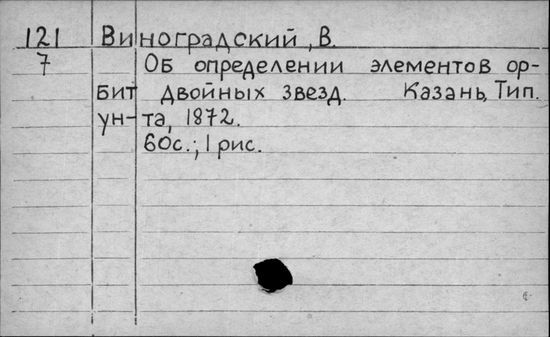 121 Виноградский, В.
7 Об определении элементов ор-
бит двойных звезд. Казань, Тип.
ун-та, 1872.
60с.; 1 рис.